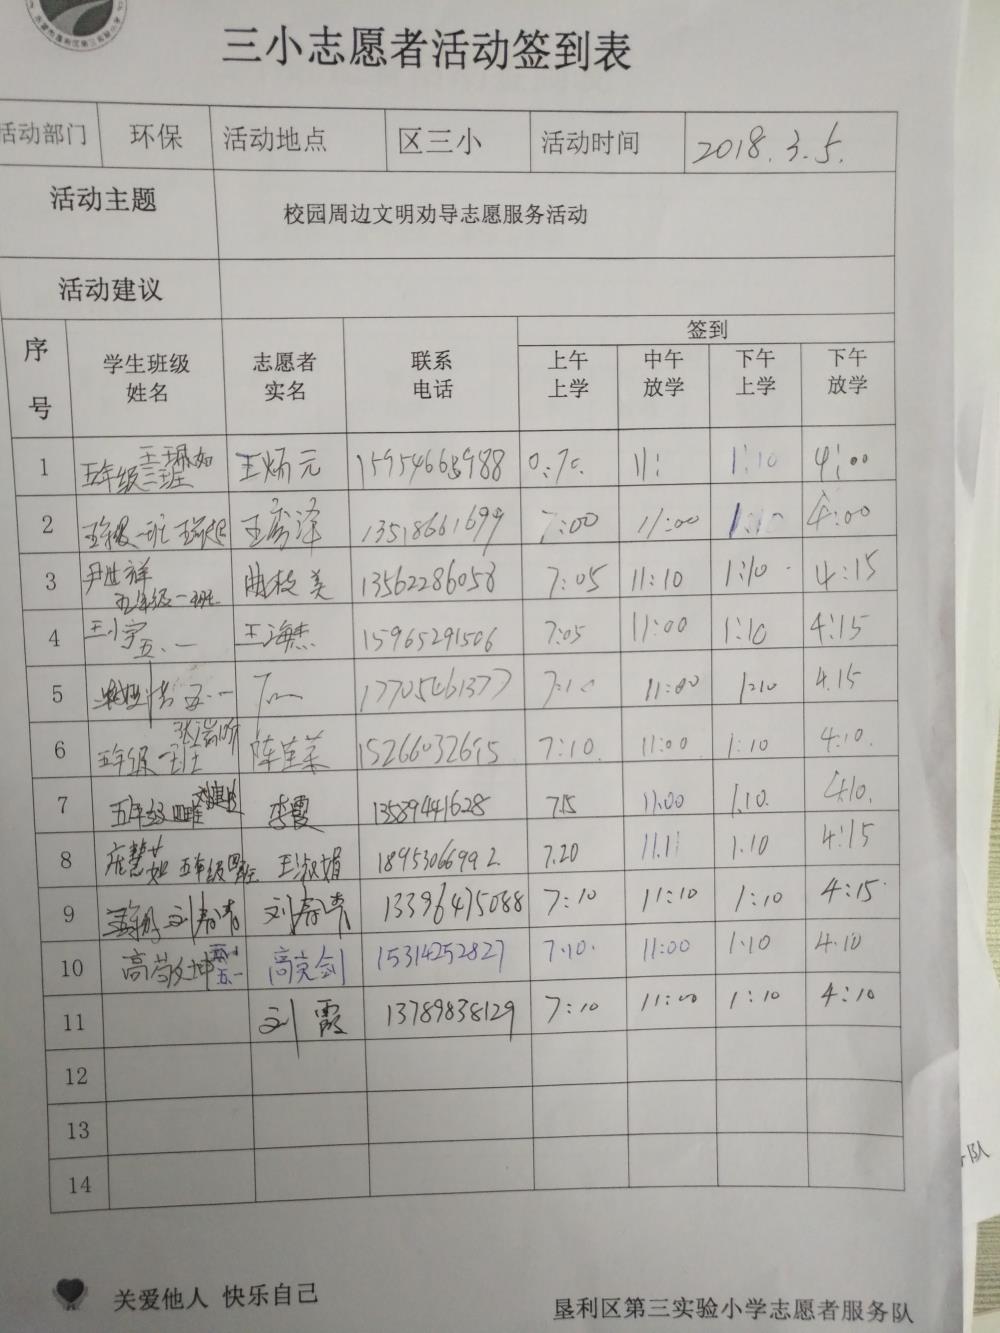 三小志愿者活动签到表
活动部门 环保 活动地点 区三小 活动时间 2018.3.5.
活动主题 校园周边文明劝导志愿服务活动
活动建议
签到
序号 学生班级姓名 志愿者实名 联系电话 上午上学 中午放学 下午上学 下午放学
1 五年级三班 王炳元 15954668988 11: 1:10 4:00
2 五年级一班 王秀泽 13518661699 7:00 11:00 1:10 4:00
3 尹世祥 五年级一班 曲枝美 13562286058 7:05 11:10 1:10 4:15
4 王小宇 五.一 王海杰 15965291506 7:05 11:00 1:10 4:15
5 五.一 17705461377 7:10 11:00 1:10 4.15
6 五年级 陈佳莱 15266032615 7:10 11:00 1:10 4:10.
7 五年级四班 李霞 13589441628 7.15 11.00 1.10. 4:10.
8 庄慧茹 五年级四班 王淑娟 18953066992 7.20 11.11 1.10 4:15
9 刘春青 13396475088 7:10 11:10 1:10 4:15
10 高敬坤 五.一 高克剑 15314252827 7.10. 11:00 1.10 4.10
11 刘霞 13789838129 7:10 11:00 1:10 4:10
12
13
14
关爱他人 快乐自己
垦利区第三实验小学志愿者服务队
务队